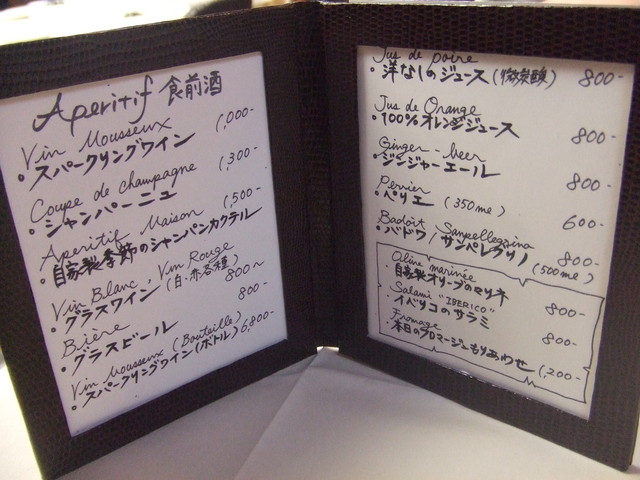 Aperitif 食前酒
Vin Mousseux
・スパークリングワイン 1,000-
Coupe de champagne
・シャンパーニュ 1,300-
Aperitif Maison 1,500-
・自家製季節のシャンパンカクテル
Vin Blanc, Vin Rouge
・グラスワイン (白、赤各種) 800~
Bière 800-
・グラスビール
Vin Mousseux (Bouteille)
・スパークリングワイン(ボトル) 6,800-
Jus de poire
・洋なしのジュース (微炭酸) 800-
Jus de Orange
・100%オレンジジュース 800-
Ginger-beer
・ジンジャーエール 800-
Perrier
・ペリエ (350ml) 600-
Badoit Sanpellegrina
・バドワ/サンペレグリノ 800-
(500ml)
Olive marinée
・自家製オリーブのマリネ 800-
Salami "IBERICO"
・イベリコのサラミ 800-
Fromage
・本日のフロマージュもりあわせ 1,200-